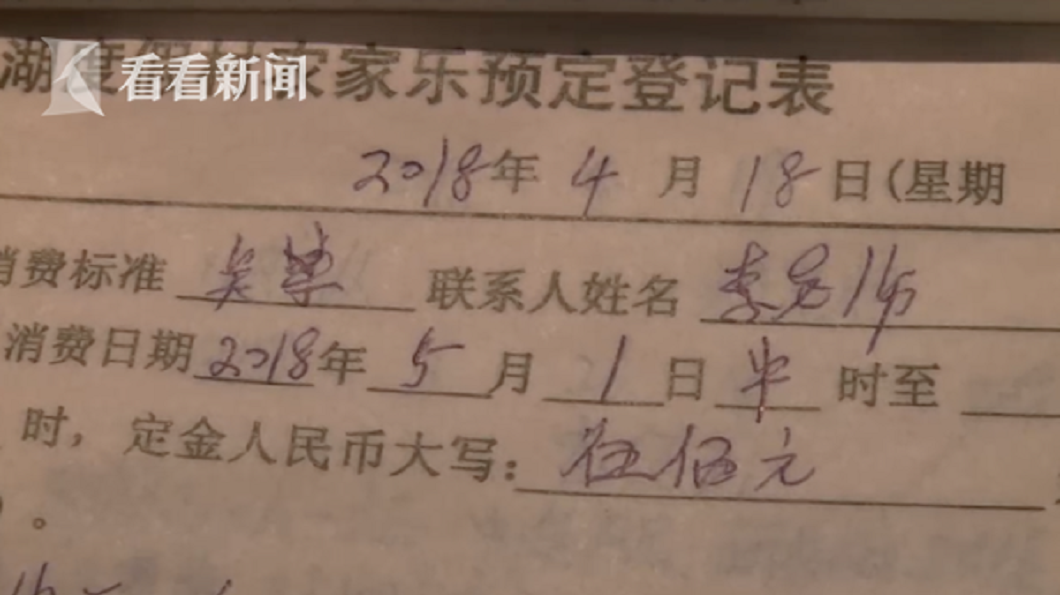 看看新闻
湖度假村农家乐预定登记表
2018年 4 月 18 日(星期
消费标准 联系人姓名 李
消费日期 2018年 5 月 1 日 中 时至
时,定金人民币大写:伍佰元
。